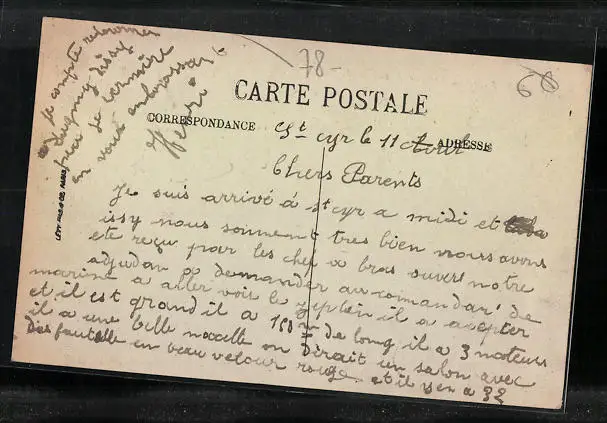 78-
CARTE POSTALE
CORRESPONDANCE
ADRESSE
St cyr le 11 Avril
Chers Parents
Je suis arrivé á St cyr a midi et
issy nous sonment tres bien nous avons
ete reçu par les chef a bras ouvert notre
adjudan a demander au comandan' de
marine a aller voir le zeplein il a acepter
et il est grand il a 150 m de long il a 3 moteurs
il a une belle nacelle on dirait un salon avec
des fautelle en beau velour rouge et il y en a 32
Je compte retourner
a Dugny issy
de
en vous embrassant
Henri